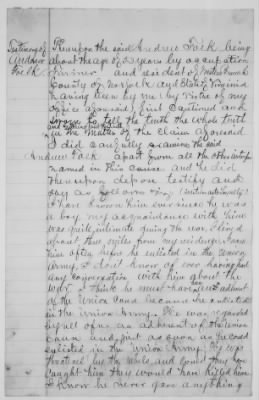 Testimony of
Andrew
Fock
Thereupon the said Andrew Fock being
about the age of years by occupation
Farmer and resident of
County of Norfolk and State of Virginia
having been by me by virtue of my
office aforesaid first cautioned and
sworn to tell the truth the whole truth
in the matter of the claim aforesaid
I did carefully examine the said
Andrew Fock apart from all the other
named in this cause and he did
thereupon depose testify and
say as follows
I have known him ever since he was
a boy my acquaintance with him
was quite intimate during the war. I lived
about miles from my residence. I saw
him often before he enlisted in the Union
Army, I don't know of ever having had
any conversation with him about the
war. I think he must have been an adherent
of the Union Cause because he enlisted
in the Union Army. He was regarded
by all of us an adherent of the Union
Cause and just as soon as he could
enlisted in the Union Army. He was
threatened by the rebels and could they have
caught him they would have killed him
I know he never gave anything